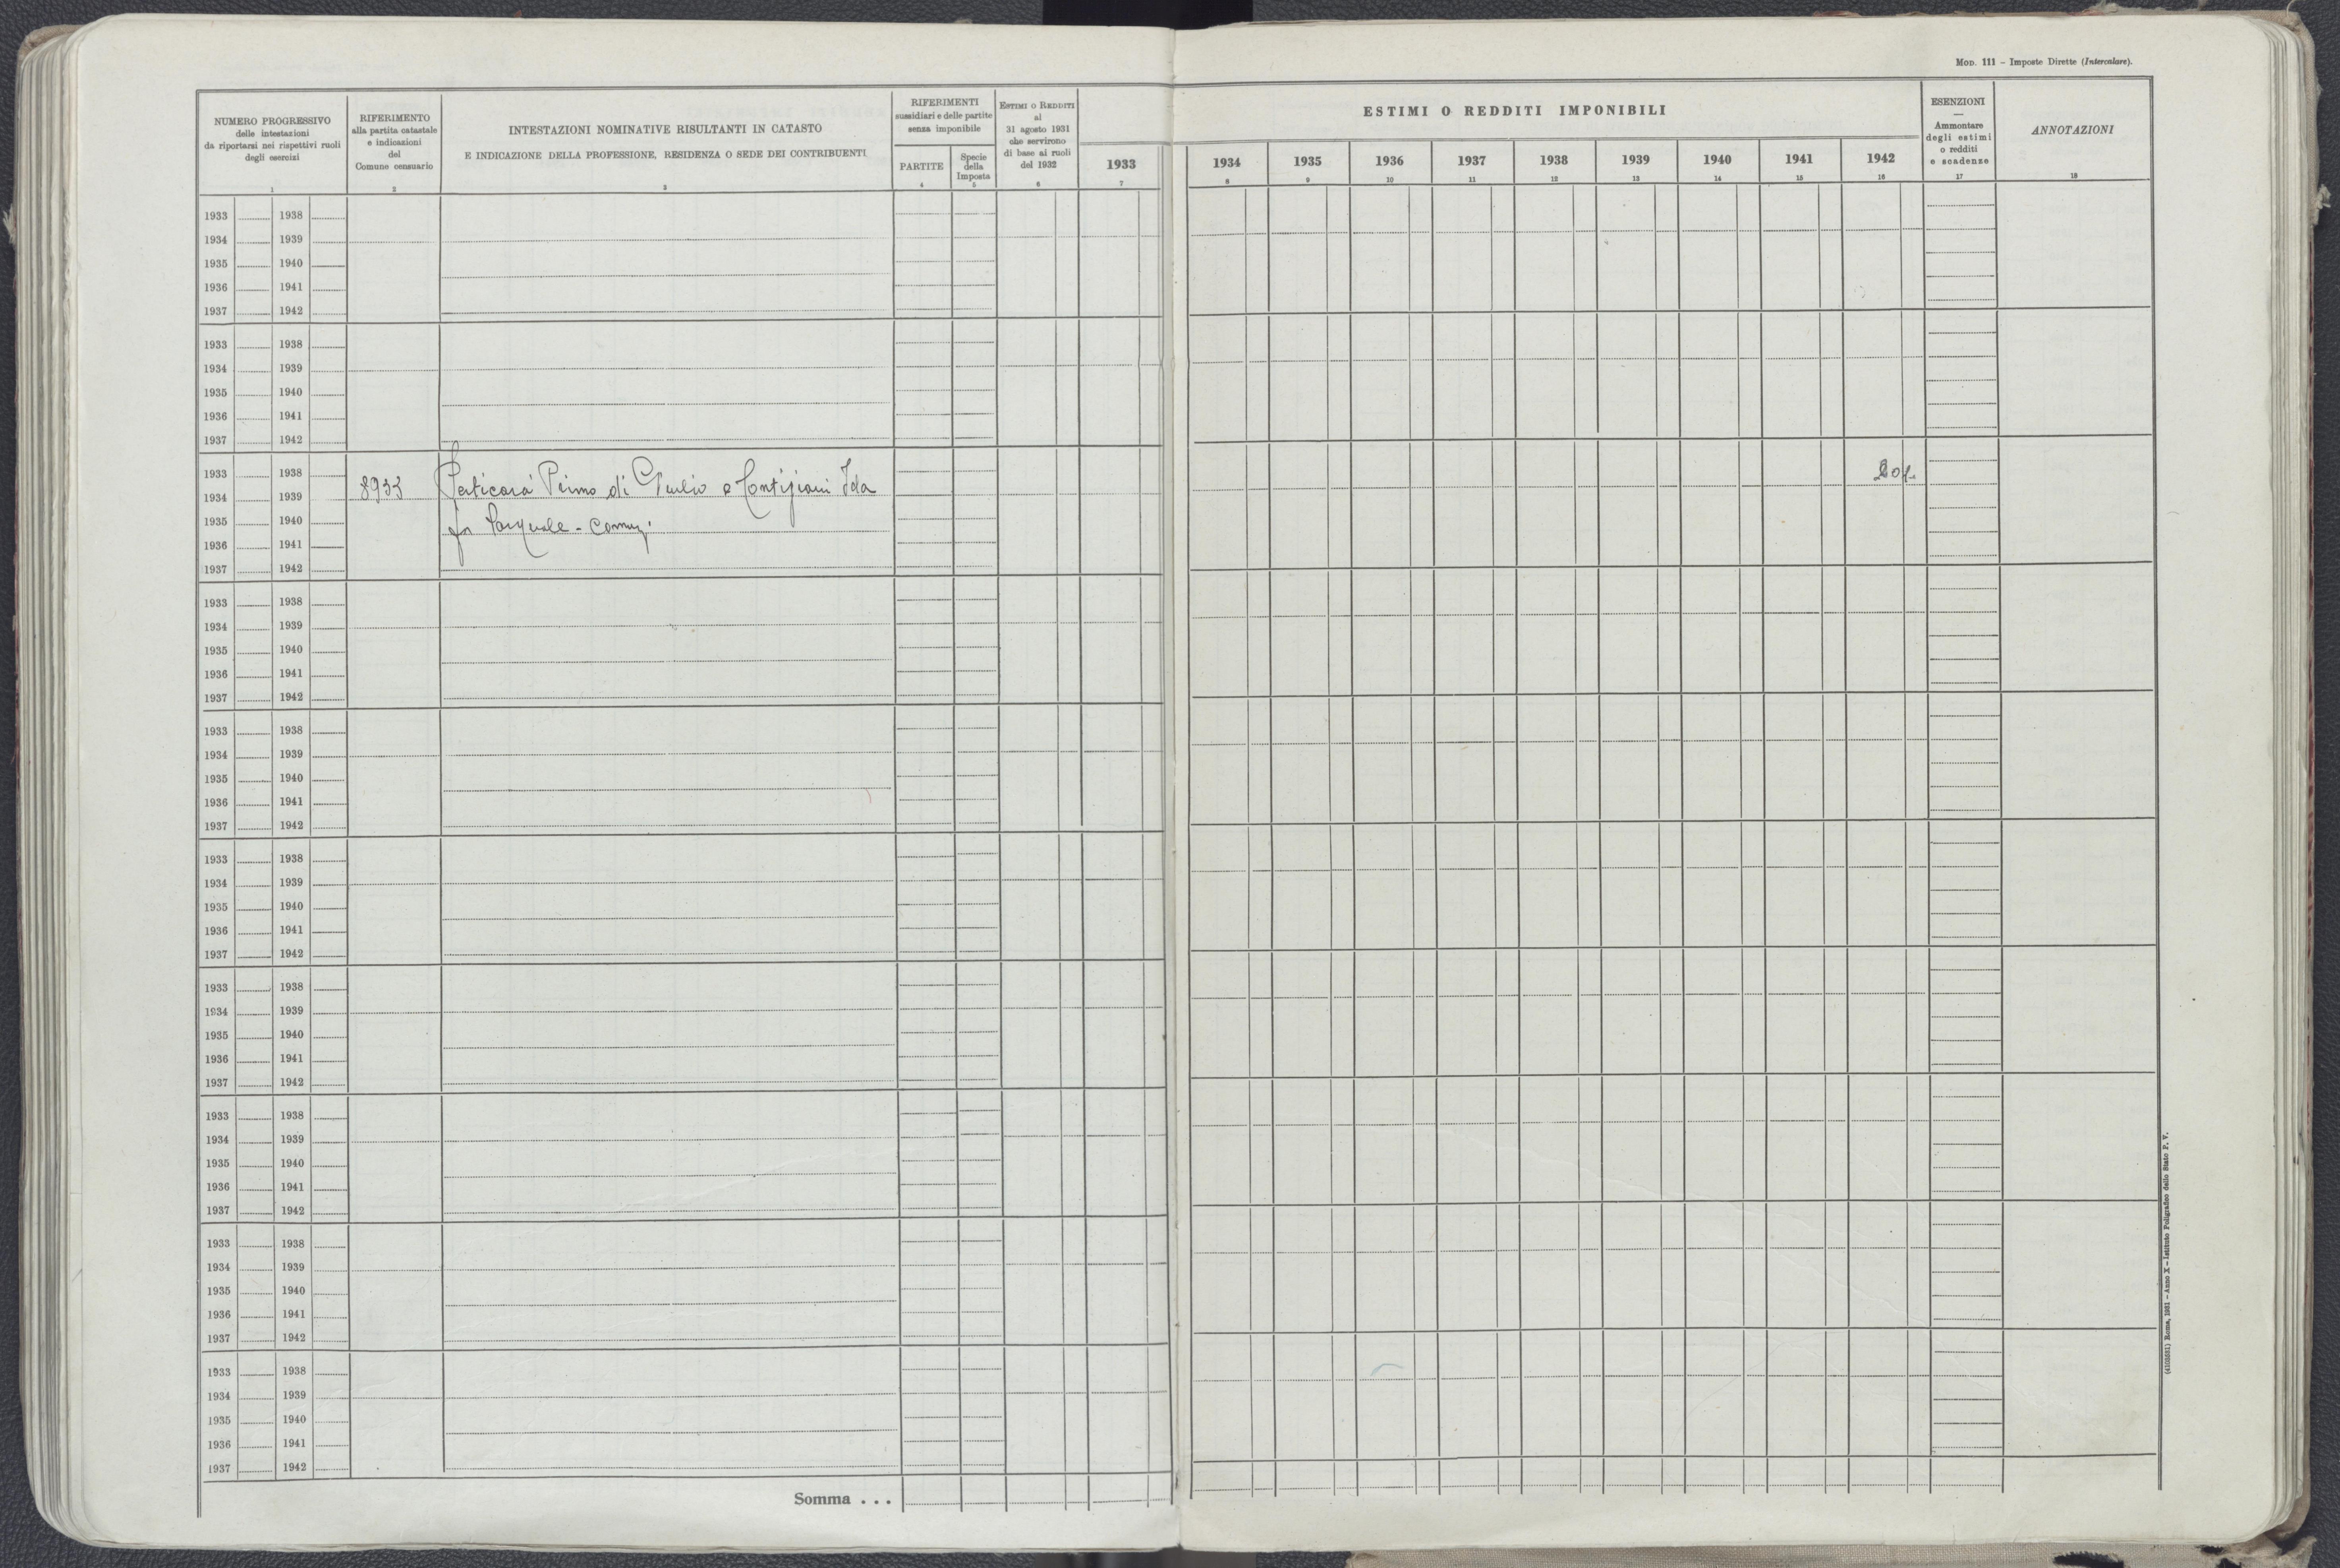 Mod. 111 – Imposte Dirette (Intercalare).
NUMERO PROGRESSIVO
delle intestazioni
da riportarsi nei rispettivi ruoli
degli esercizi
1
RIFERIMENTO
alla partita catastale
e indicazioni
del
Comune censuario
2
INTESTAZIONI NOMINATIVE RISULTANTI IN CATASTO
E INDICAZIONE DELLA PROFESSIONE, RESIDENZA O SEDE DEI CONTRIBUENTI
3
RIFERIMENTI
sussidiari e delle partite
senza imponibile
PARTITE
4
Specie
della
Imposta
5
Estimi o Redditi
al
31 agosto 1931
che servirono
di base ai ruoli
del 1932
6
ESTIMI O REDDITI IMPONIBILI
1933 1934 1935 1936 1937 1938 1939 1940 1941 1942
7 8 9 10 11 12 13 14 15 16
ESENZIONI
—
Ammontare
degli estimi
o redditi
e scadenze
17
ANNOTAZIONI
18
1933 1938
1934 1939
1935 1940
1936 1941
1937 1942
1933 1938
1934 1939
1935 1940
1936 1941
1937 1942
1933 1938
1934 1939 8933 Perticarà Primo di Giulio e Contigiani Ida
1935 1940 fu Pasquale - coniugi
1936 1941
1937 1942
1933 1938
1934 1939
1935 1940
1936 1941
1937 1942
1933 1938
1934 1939
1935 1940
1936 1941
1937 1942
1933 1938
1934 1939
1935 1940
1936 1941
1937 1942
1933 1938
1934 1939
1935 1940
1936 1941
1937 1942
1933 1938
1934 1939
1935 1940
1936 1941
1937 1942
1933 1938
1934 1939
1935 1940
1936 1941
1937 1942
1933 1938
1934 1939
1935 1940
1936 1941
1937 1942
Somma . . .
(4103581) Roma, 1931 – Anno X – Istituto Poligrafico dello Stato P. V.